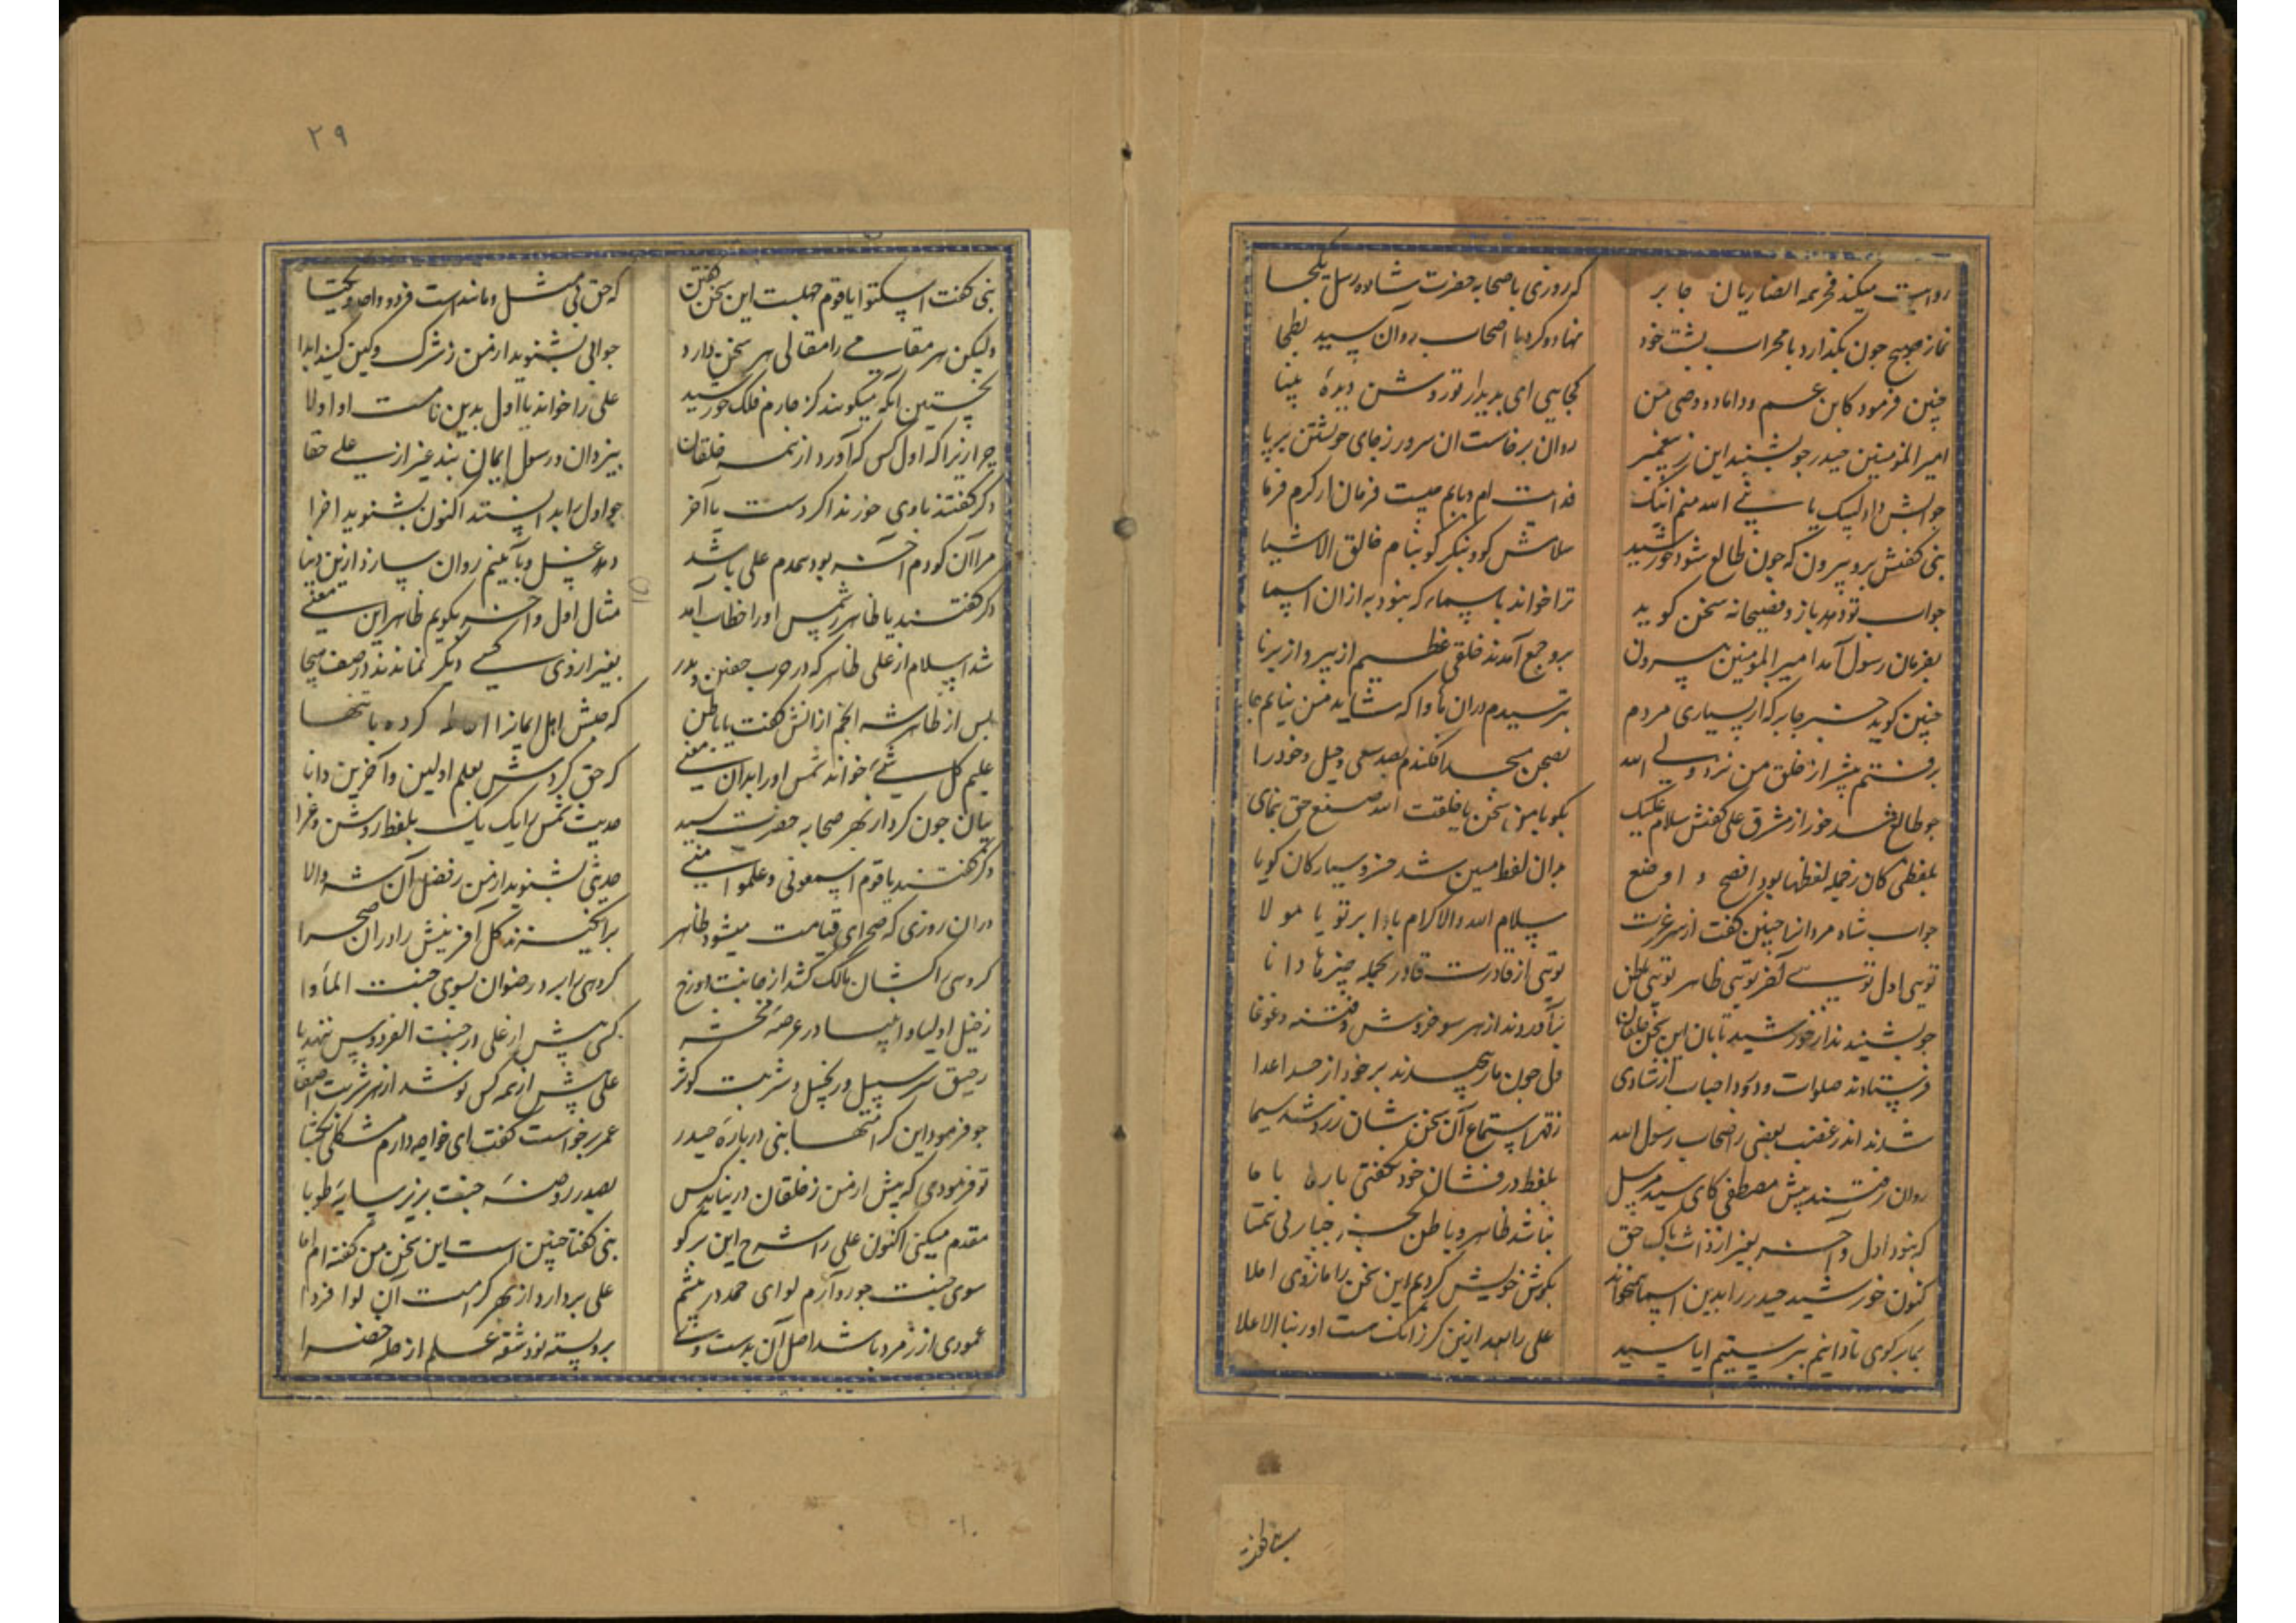 روایت میکند فخر همه انصاریان جابر
که روزی با صحابه حضرت شاه رسل یکجا
نماز صبح چون بگذارد با محراب پشت خود
نهاد و کرد با اصحاب روان سید بطحا
چنین فرمود کابن عم و داماد و وصی من
کجایی ای بدیدار تو روشن دیدهٔ بینا
امیر المؤمنین حیدر چو بشنید این ز پیغمبر
روان برخاست ان سرور ز جای خویشتن بر پا
جوابش داد لبیک یا نبی الله منم اینک
فدایت ام و بابم چیست فرمان از کرم فرما
نبی گفتش برو بیرون که چون طالع شود خورشید
سلامش کو و بنگر کو بنام خالق الاشیا
جواب تو دهد باز و فصیحانه سخن گوید
ترا خواند باسمایی که نبود به ازان اسما
بفرمان رسول آمد امیر المؤمنین بیرون
برو جمع آمدند خلقی عظیم از پیر و از برنا
چنین گوید خبر جابر که از بسیاری مردم
بترسیدم دران ماوا که شاید من نیابم جا
برفتم پیشتر از خلق من نزد ولی الله
بصحن مسجد افکندم بصد سعی و حیل خود را
چو طالع شد خور از مشرق علی گفتش سلام علیک
بگو با من سخن یا خلقت الله صنع حق بنمای
بلفظی کان ز جمله لفظها بود افصح و اوضع
بدان لفظ مبین شد خسرو سیارکان گویا
جواب شاه مردانرا چنین گفت از سر عزت
سلام الله والاکرام بادا بر تو یا مولا
تویی اول تویی آخر تویی ظاهر تویی باطن
تویی از قدرت قادر بجمله چیزها دانا
چو بشنیدند از خورشید تابان این سخن خلقان
برآوردند از هر سو خروش و فتنه و غوغا
فرستادند صلوات و درود احباب از شادی
ولی چون مار پیچیدند بر خود از حسد اعدا
شدند اندر غضب بعضی ز اصحاب رسول الله
ز قهر استماع آن سخن شان زرد شد سیما
روان رفتند پیش مصطفی کای سید مرسل
بلفظ در فشان خود بگفتی بارها با ما
که نبود اول و آخر بغیر از ذات پاک حق
نباشد ظاهر و باطن بجز جبار بی همتا
کنون خورشید حیدر را بدین اسما همیخواند
بگوش خویش کردیم این سخن را ما ز وی اصلا
بما بر گوی تا دانیم بپرستیم ایا سید
علی را بعد ازین کر زانک هست او ربنا الاعلا
نبی گفت اسکتوا یا قوم جهلست این سخن گفتن
که حق بی مثل و مانند است فرد و واحد و یکتا
ولیکن هر مقامی را مقالی هر سخن دارد
جوابی بشنوید از من ز شرک و کین کنید ابدا
نخستین آنکه میگویند کز چارم فلک خورشید
علی را خواند یا اول بدین نامست او اولا
چرا زیرا که اول کس که آورد از همه خلقان
بیزدان و رسول ایمان نبد غیر از علی حقا
دکر گفتند با وی خورند اگر دست یا آخر
چو اول را بدانستند اکنون بشنوید اخرا
مرا آن کو دم آخر بود همدم علی باشد
دهد غسل و بآیینم روان سپارد ازین دنیا
دکر گفتند یا ظاهر ز شمس او را خطاب آمد
مثال اول و آخر بگویم ظاهر این معنی
شد اسلام از علی ظاهر که در حرب حنین و بدر
بغیر از وی کسی دیگر نماندند در صف هیجا
پس از ظاهر شه انجم ازانش گفت یا باطن
که عیش اهل ایمانرا احاطه کرده با تنها
علیم کل شیء خواند شمس او را بدان معنی
که حق کردش بعلم اولین و آخرین دانا
بیان چون کرد از بهر صحابه حضرت سید
حدیث شمس را یک یک بلفظ روشن و غرا
دکر گفتند یا قوم اسمعونی و علموا منی
حدیثی بشنوید از من ز فضل آن شه والا
دران روزی که صحرای قیامت میشود ظاهر
برانگیزند کل آفرینش را دران صحرا
کروهی را کشان مالک کشد از جانب دوزخ
کروهی را برد رضوان بسوی جنت المأوا
ز خیل اولیا و انبیا در عرصهٔ محشر
کسی پیش از علی در جنت الفردوس ننهد پا
رحیق سلسبیل و زنجبیل و شربت کوثر
علی پیش از همه کس نوشد از هر شربت اصفا
چو فرمود این کرامتها نبی دربارهٔ حیدر
عمر برخواست گفت ای خواجه دارم مشکلی بگشا
تو فرمودی که پیش از من ز خلقان در نیاید کس
بصدر روضهٔ جنت بزیر سایهٔ طوبا
مقدم میکنی اکنون علی را شرح این بر گو
نبی گفتا چنین است این سخن من گفته ام اما
سوی جنت چو رو آرم لوای حمد در پیشم
علی بردارد از بهر کرامت آن لوا فردا
عمودی از زمرد باشد اصل آن بدست وی
برو بسته نود شقه علم از حله خضرا